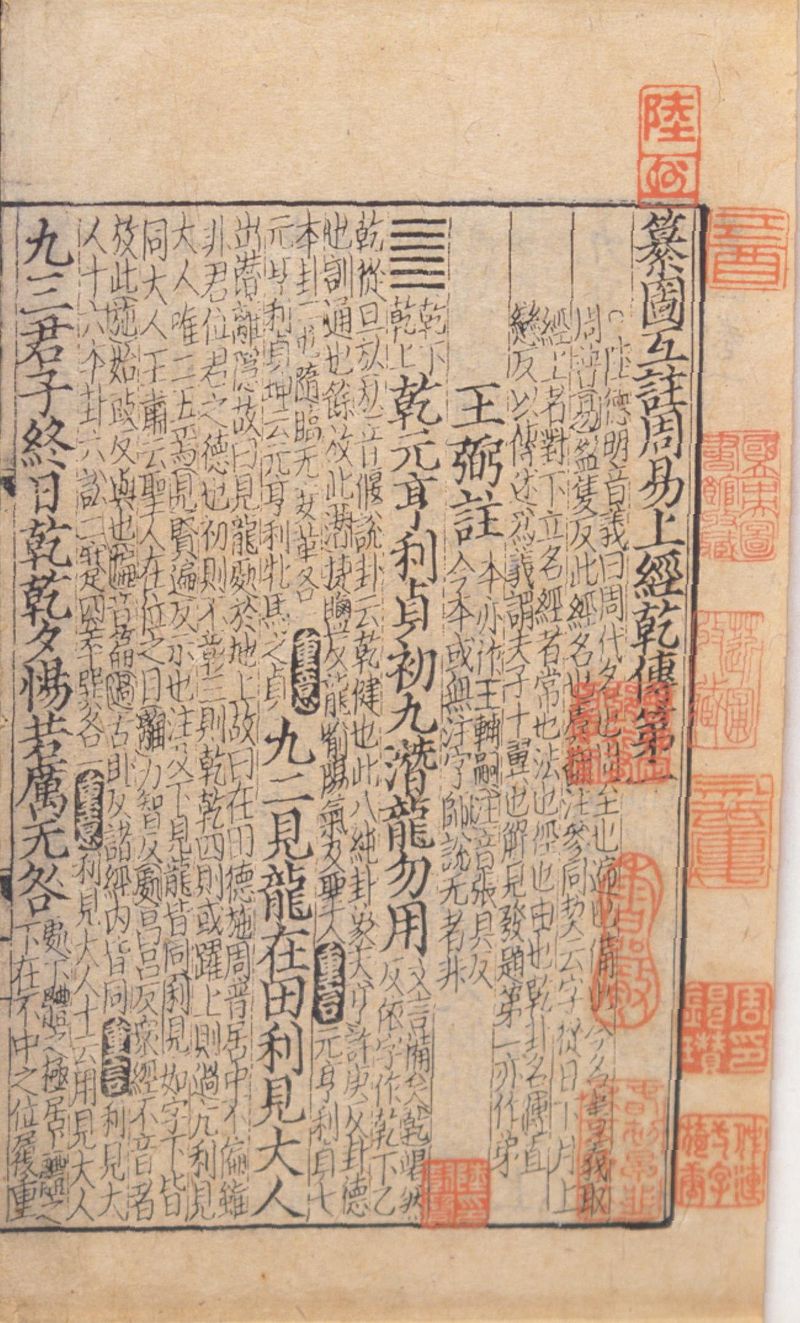 纂圖互註周易上經乾傳第一
陸德明音義曰周代名也周至也遍也備也今名書義取
周普易盈隻反此經名也虞翻注參同契云字從日下月上
經上者對下立名經者常也法也徑也由也乾卦名傳直
戀反以傳述為義謂夫子十翼也解見發題第一亦作弟
王弼註
本亦作王輔嗣注音張具反
今本或無注字師說无者非
乾下
乾上
乾元亨利貞初九潛龍勿用
文言備矣乾竭然
反依字作乾下乙
乾從旦㫃㫃音偃說卦云乾健也此八純卦象天亨許庚反卦德
也訓通也餘放此潛捷鹽反龍喻陽氣及聖人
重言
元亨利貞七
本卦二屯隨臨无妄革各一
元亨利貞坤云元亨利牝馬之貞
重意
九二見龍在田利見大人
出潛離隱故曰見龍處於地上故曰在田德施周普居中不偏雖
非君位君之德也初則不彰三則乾乾四則或躍上則過亢利見
大人唯二五焉見賢遍反示也注及下見龍皆同利見如字下皆
同大人王肅云聖人在位之目離力智反處昌呂反衆經不音者
放此施始豉反與也偏音篇過古臥反諸經內皆同
重言
利見大
人十六本卦六訟二蹇四萃巽各一
重意
利見大人十云用見大人
九三君子終日乾乾夕惕若厲无咎
處下體之極居上體之
下在不中之位履重